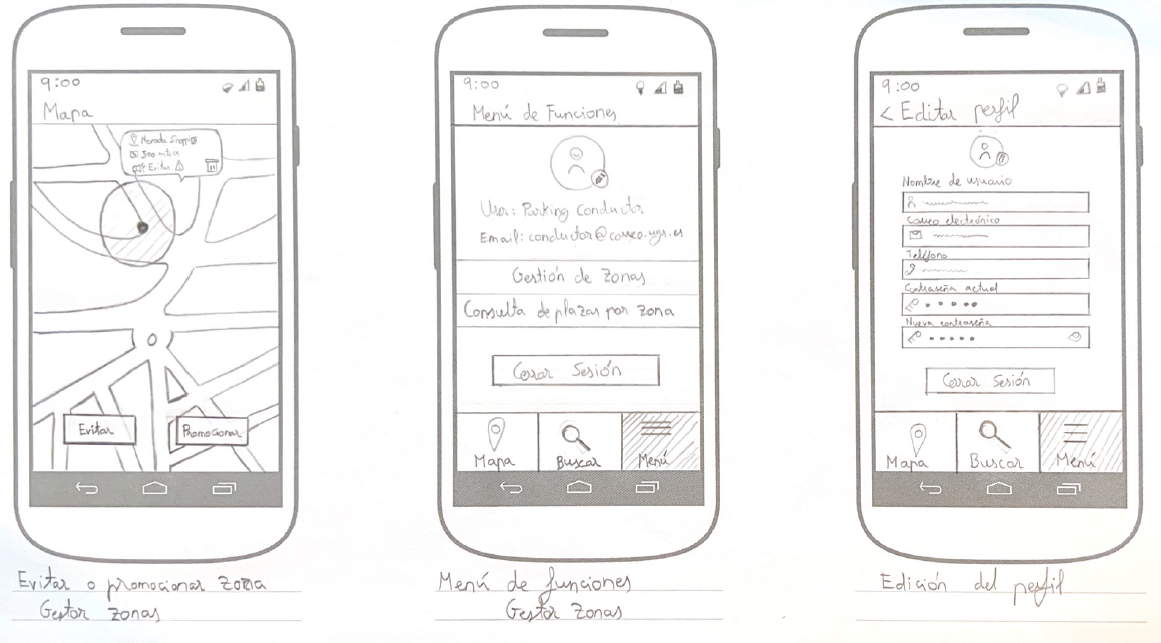 9:00
Mapa
Nevada Shopping
500 metros
Evitar
Evitar
Promocionar
Evitar o promocionar zona
Gestor zonas
9:00
Menú de Funciones
User: Parking Conductor
Email: conductor@correo.ugr.es
Gestión de zonas
Consulta de plazas por zona
Cerrar Sesión
Mapa
Buscar
Menú
Menú de funciones
Gestor zonas
9:00
< Editar perfil
Nombre de usuario
Correo electrónico
Teléfono
Contraseña actual
Nueva contraseña
Cerrar Sesión
Mapa
Buscar
Menú
Edición del perfil